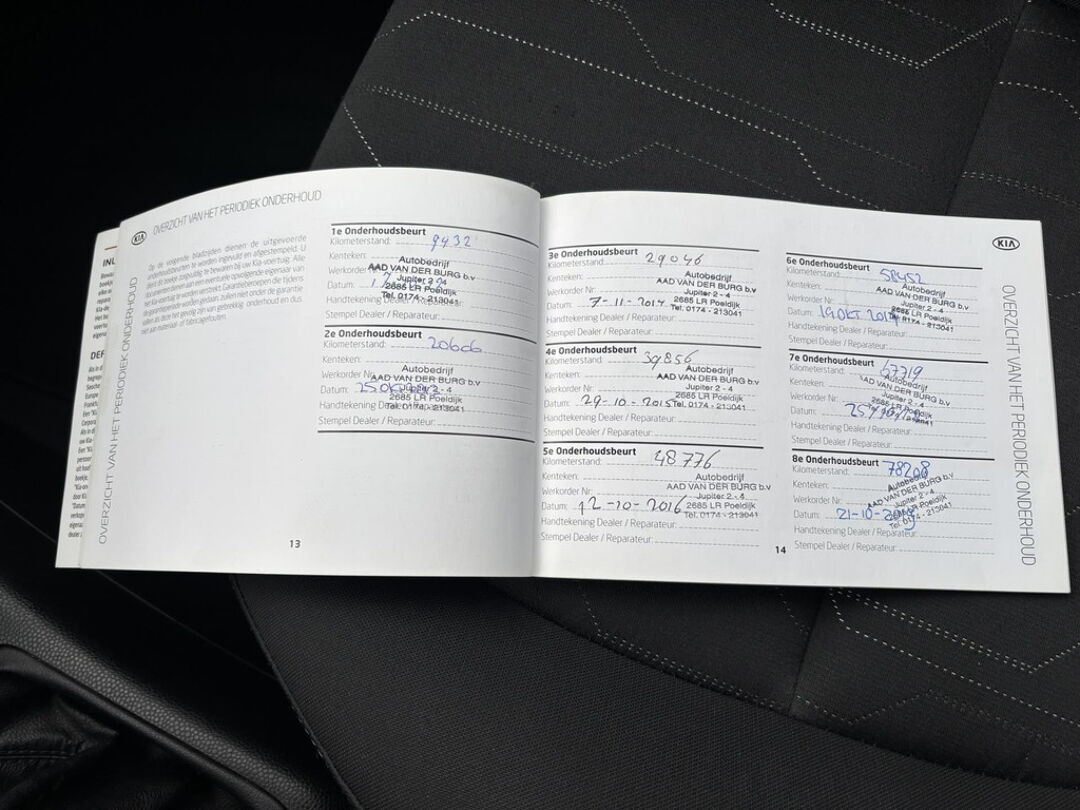 KIA
OVERZICHT VAN HET PERIODIEK ONDERHOUD
OVERZICHT VAN HET PERIODIEK ONDERHOUD
Op de volgende bladzijden dienen de uitgevoerde
onderhoudsbeurten te worden ingevuld en afgestempeld. U
dient dit boekje zorgvuldig te bewaren bij uw Kia-voertuig. Alle
documenten dienen aan een eventuele opvolgende eigenaar van
het Kia-voertuig te worden gegeven. Garantiereparaties die tijdens
de garantieperiode worden gedaan, zullen niet onder de garantie
vallen als deze het gevolg zijn van gebrekkig onderhoud en dus
niet aan materiaal- of fabricagefouten.
1e Onderhoudsbeurt
Kilometerstand: 9432
Kenteken:
Autobedrijf
Werkorder
AAD VAN DER BURG b.v
Jupiter 2-4
Datum:
2685 LR Poeldijk
Tel. 0174 - 213041
Handtekening Dealer / Reparateur:
Stempel Dealer / Reparateur:
2e Onderhoudsbeurt
Kilometerstand: 20606
Kenteken:
Autobedrijf
Werkorder Nr:
AAD VAN DER BURG b.v
Jupiter 2-4
Datum: 25 Okt
2685 LR Poeldijk
Tel. 0174 - 213041
Handtekening Dealer / Reparateur:
Stempel Dealer / Reparateur:
13
3e Onderhoudsbeurt
Kilometerstand: 29046
Kenteken:
Autobedrijf
AAD VAN DER BURG b.v
Werkorder Nr:
Jupiter 2 - 4
Datum: 7-11-2014
2685 LR Poeldijk
Tel. 0174 - 213041
Handtekening Dealer / Reparateur:
Stempel Dealer / Reparateur:
4e Onderhoudsbeurt
Kilometerstand: 39856
Kenteken:
Autobedrijf
AAD VAN DER BURG b.v
Werkorder Nr:
Jupiter 2 - 4
2685 LR Poeldijk
Datum: 29-10-2015
Tel. 0174 - 213041
Handtekening Dealer / Reparateur:
Stempel Dealer / Reparateur:
5e Onderhoudsbeurt
Kilometerstand: 48776
Kenteken:
Autobedrijf
AAD VAN DER BURG b.v
Werkorder Nr:
Jupiter 2 - 4
Datum: 12-10-2016
2685 LR Poeldijk
Tel. 0174 - 213041
Handtekening Dealer / Reparateur:
Stempel Dealer / Reparateur:
14
KIA
6e Onderhoudsbeurt
Kilometerstand: 58452
Kenteken:
Autobedrijf
AAD VAN DER BURG b.v
Werkorder Nr:
Jupiter 2 - 4
2685 LR Poeldijk
Datum: 19 OKT
Tel. 0174 - 213041
Handtekening Dealer / Reparateur:
Stempel Dealer / Reparateur:
7e Onderhoudsbeurt
Kilometerstand: 67719
Kenteken:
Autobedrijf
AAD VAN DER BURG b.v
Werkorder Nr:
Jupiter 2 - 4
2685 LR Poeldijk
Datum: 25/10/18
Handtekening Dealer / Reparateur:
Stempel Dealer / Reparateur:
8e Onderhoudsbeurt
Kilometerstand: 78208
Kenteken:
Autobedrijf
AAD VAN DER BURG b.v
Werkorder Nr:
Jupiter 2 - 4
2685 LR Poeldijk
Datum: 21-10-2019
Tel. 0174 - 213041
Handtekening Dealer / Reparateur:
Stempel Dealer / Reparateur:
OVERZICHT VAN HET PERIODIEK ONDERHOUD